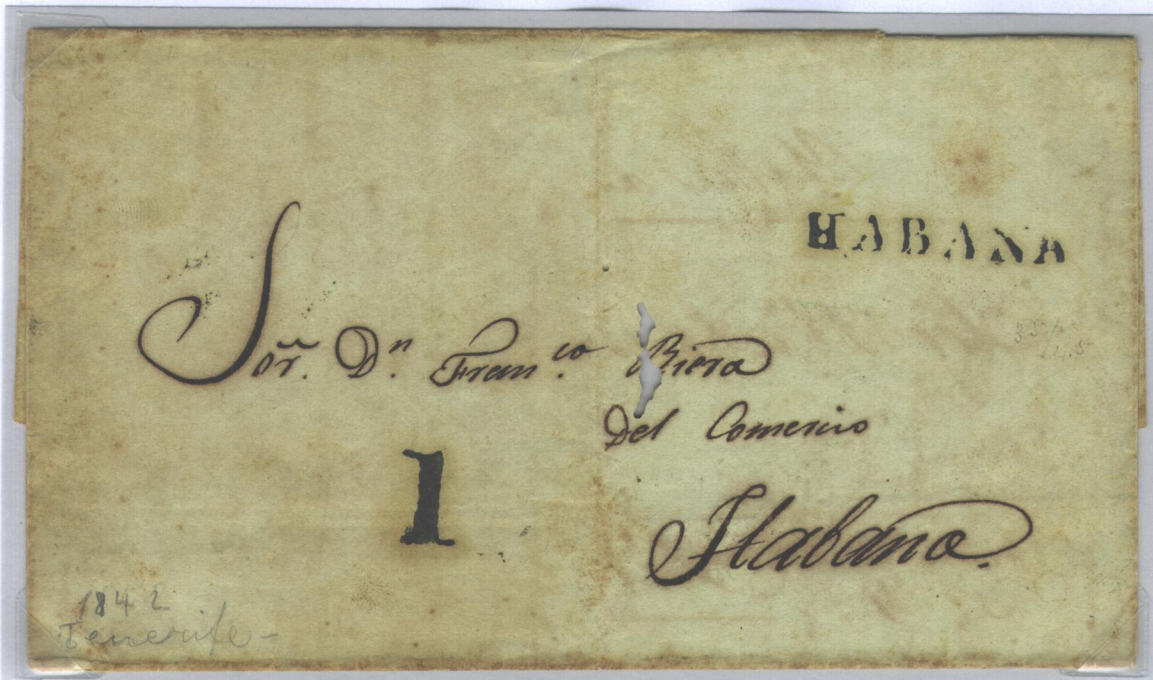 HABANA
Sor. Dn. Franco. Riera
Del Comercio
1
Habana.
1842
Tenerife-